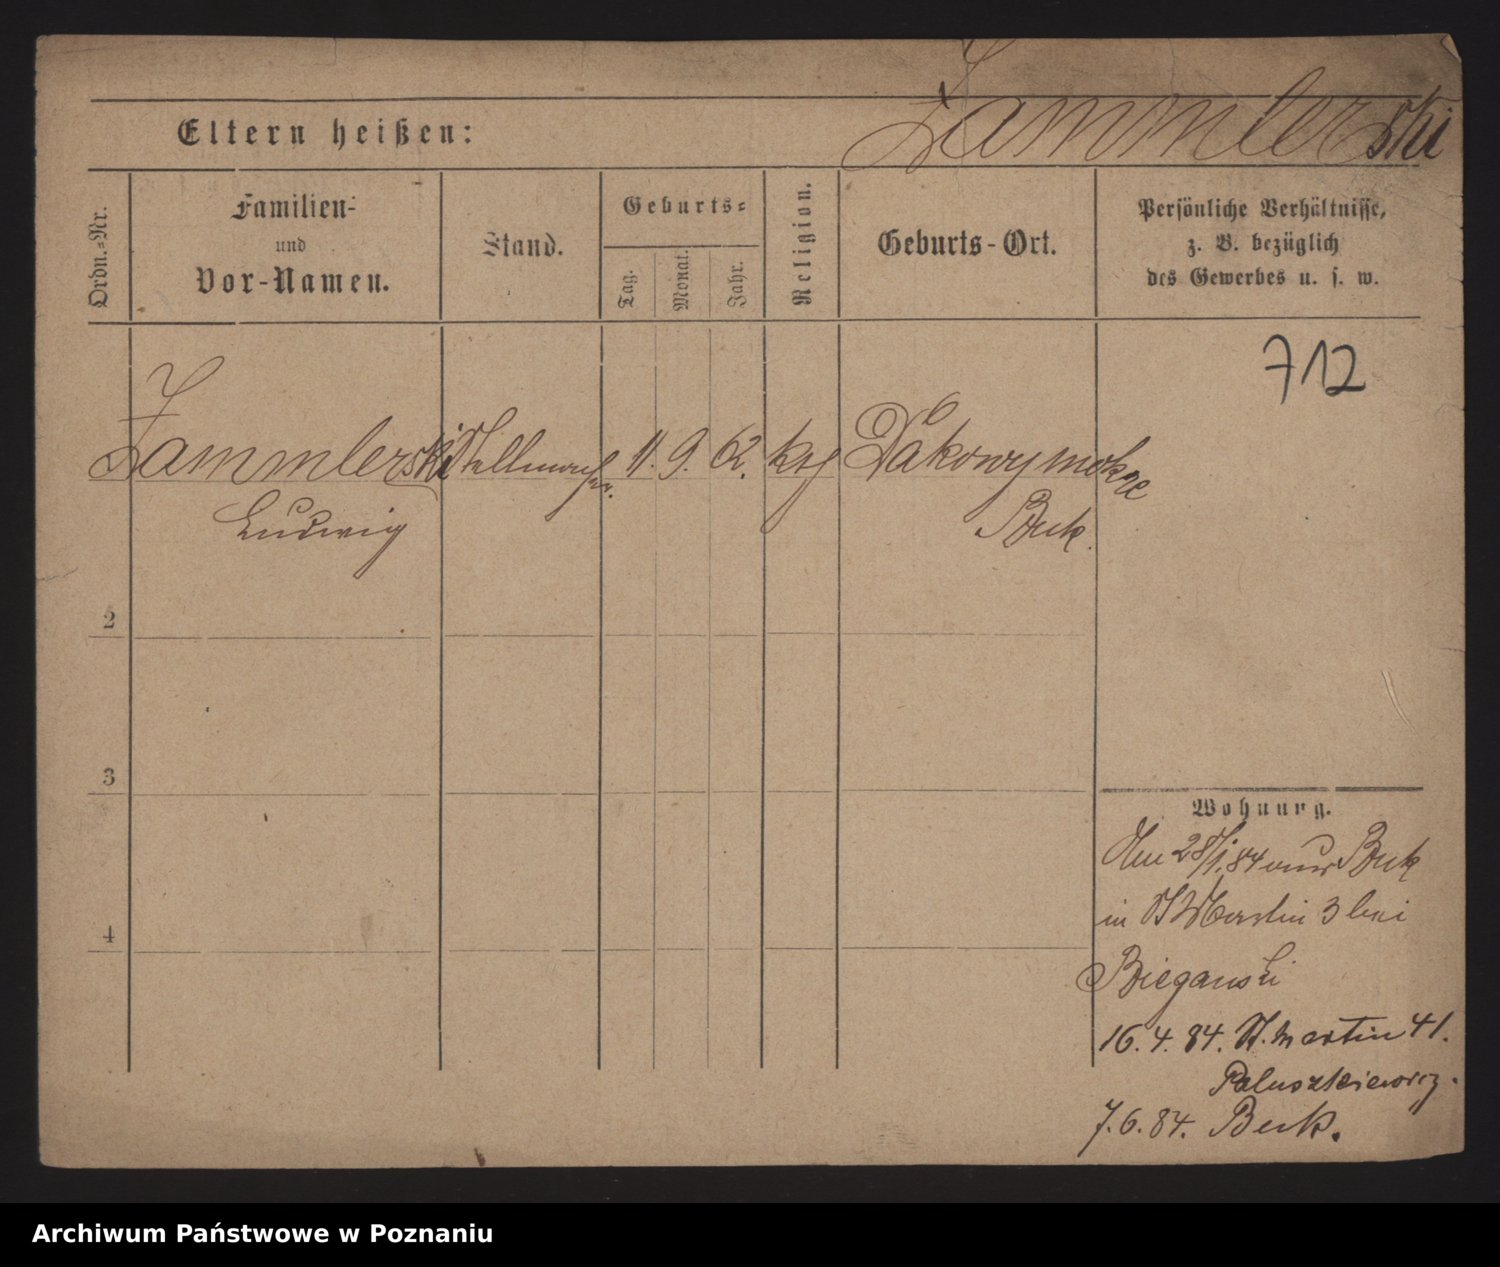 Zammlerski
Eltern heißen:
Ordn.=Nr.
Familien-
und
Vor-Namen.
Stand.
Geburts=
Tag.
Monat.
Jahr.
Religion.
Geburts-Ort.
Persönliche Verhältnisse,
z. B. bezüglich
des Gewerbes u. s. w.
712
Zammlerski Stellmacher. 11. 9. 62. kth Dakowy mokre
Ludwig Buk.
2
3
4
Wohnung.
Am 28/1. 84 aus Buk
in St Martin 3 bei
Bieganski
16. 4. 84. St. Martin 41.
Paluszkiewicz.
7. 6. 84. Buk.
Archiwum Państwowe w Poznaniu